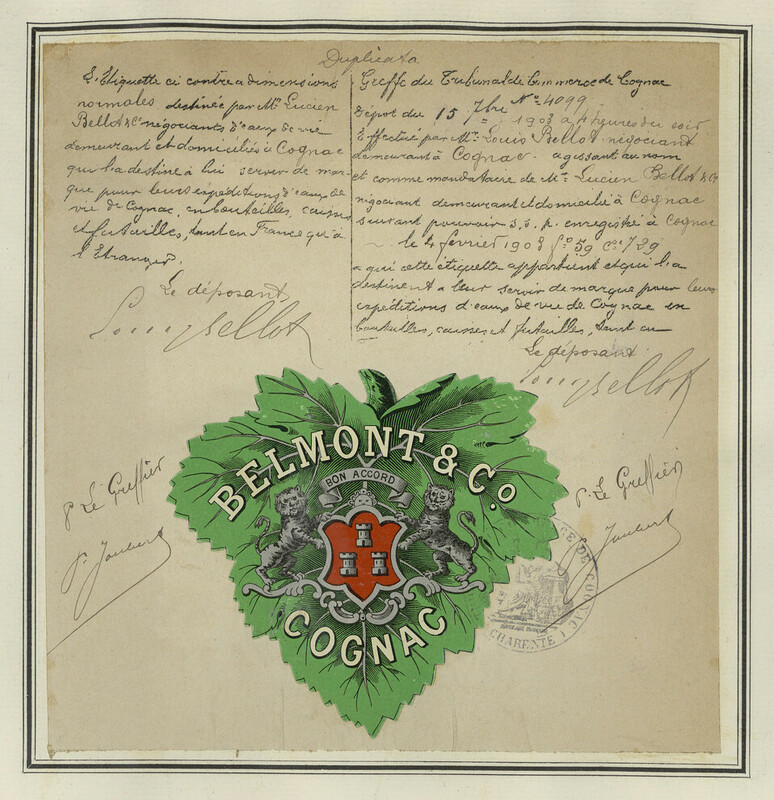 Duplicata
L'Etiquette ci contre a dimensions
normales destinée par Mr Lucien
Bellot & Co négociants d'eaux de vie
demeurant et domiciliés à Cognac
qui la destine à lui servir de mar-
que pour leurs expéditions d'eaux de
vie de Cognac, en bouteilles, caisses
et futailles, tant en France qu'à
l'Etranger.
Le déposant
Louis Bellot
Greffe du Tribunal de Commerce de Cognac
Dépôt du 15 7bre No 4099
1903 a 4 heures du soir
Effectué par Mr Louis Bellot négociant
demeurant à Cognac. agissant au nom
et comme mandataire de Mr Lucien Bellot & Co
négociant demeurant et domicilié à Cognac
suivant pouvoir s. s. p. enregistré à Cognac
le 4 fevrier 1903 fo 59 ce 729
a qui cette étiquette appartient et qui la
destinent a leur servir de marque pour leurs
expéditions d'eaux de vie de Cognac en
bouteilles, caisses et futailles, tant en
Le déposant
Louis Bellot
BELMONT & Co.
BON ACCORD
COGNAC
p. Le Greffier
P. Joubert
p. Le Greffier
P. Joubert
CE DE COGNAC
CHARENTE